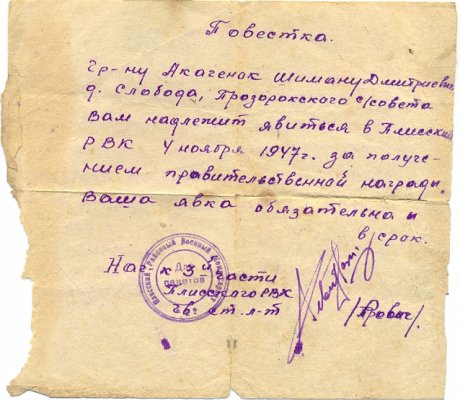 Повестка.
Гр-ну Акаченок Шиману Дмитриевич
д. Слобода, Прозорокского с/совета
Вам надлежит явиться в Плисский
РВК 4 ноября 1947г. за получе-
нием правительственной награды.
Ваша явка обязательна и
в срок.
Нач 3 части
Плисского РВК
гв. ст. л-т
Районный Военный
Для
пакетов